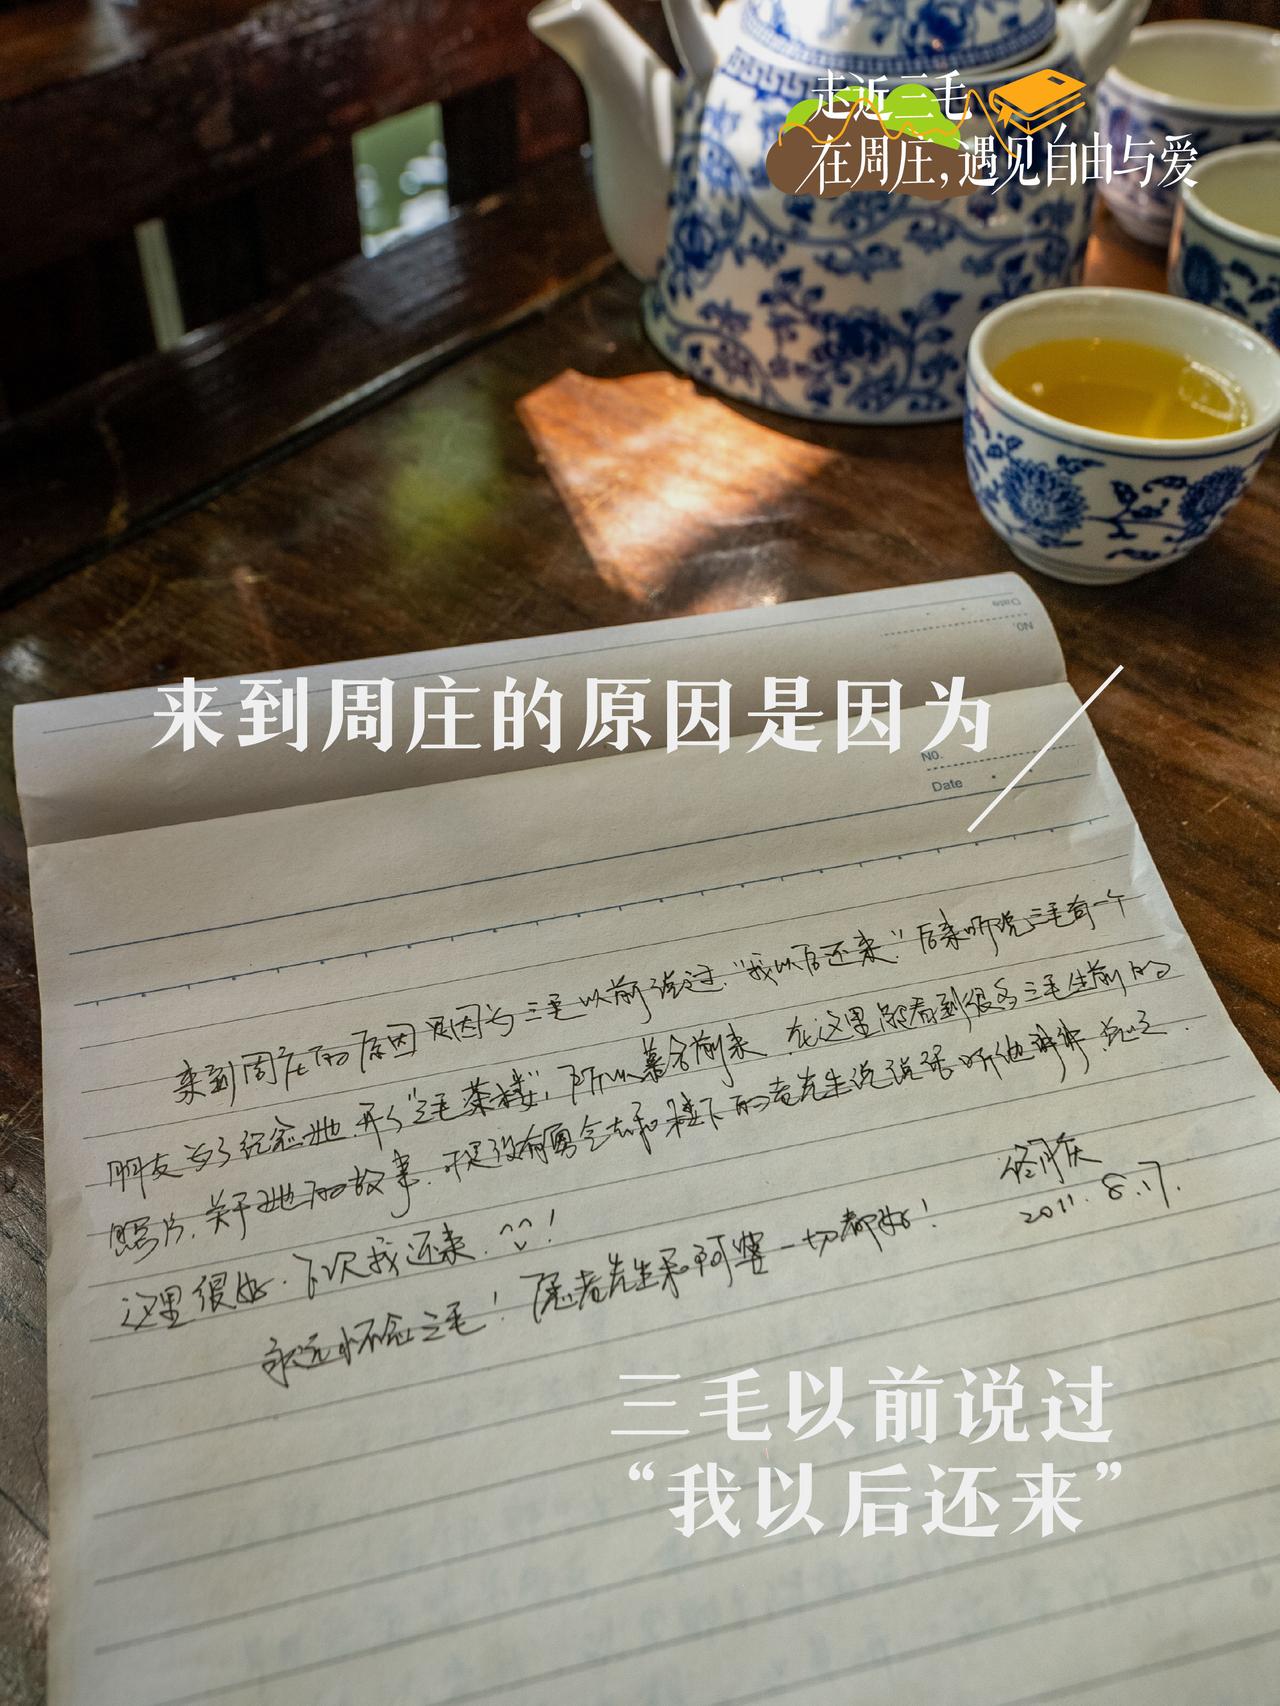 走近三毛
在周庄，遇见自由与爱
Date
NO.
来到周庄的原因是因为
NO.
Date
来到周庄的原因是因为三毛以前说过，“我以后还来.”后来听说三毛有一个
朋友为了纪念她.开了“三毛茶楼”，所以慕名前来.在这里能看到很多三毛生前的
照片.关于她的故事.只是没有勇气去和楼下的老先生说说话听他讲讲
这里很好.下次我还来.^^！
2011.8.17.
永远怀念三毛！愿老先生和阿婆一切都好！
三毛以前说过
“我以后还来”